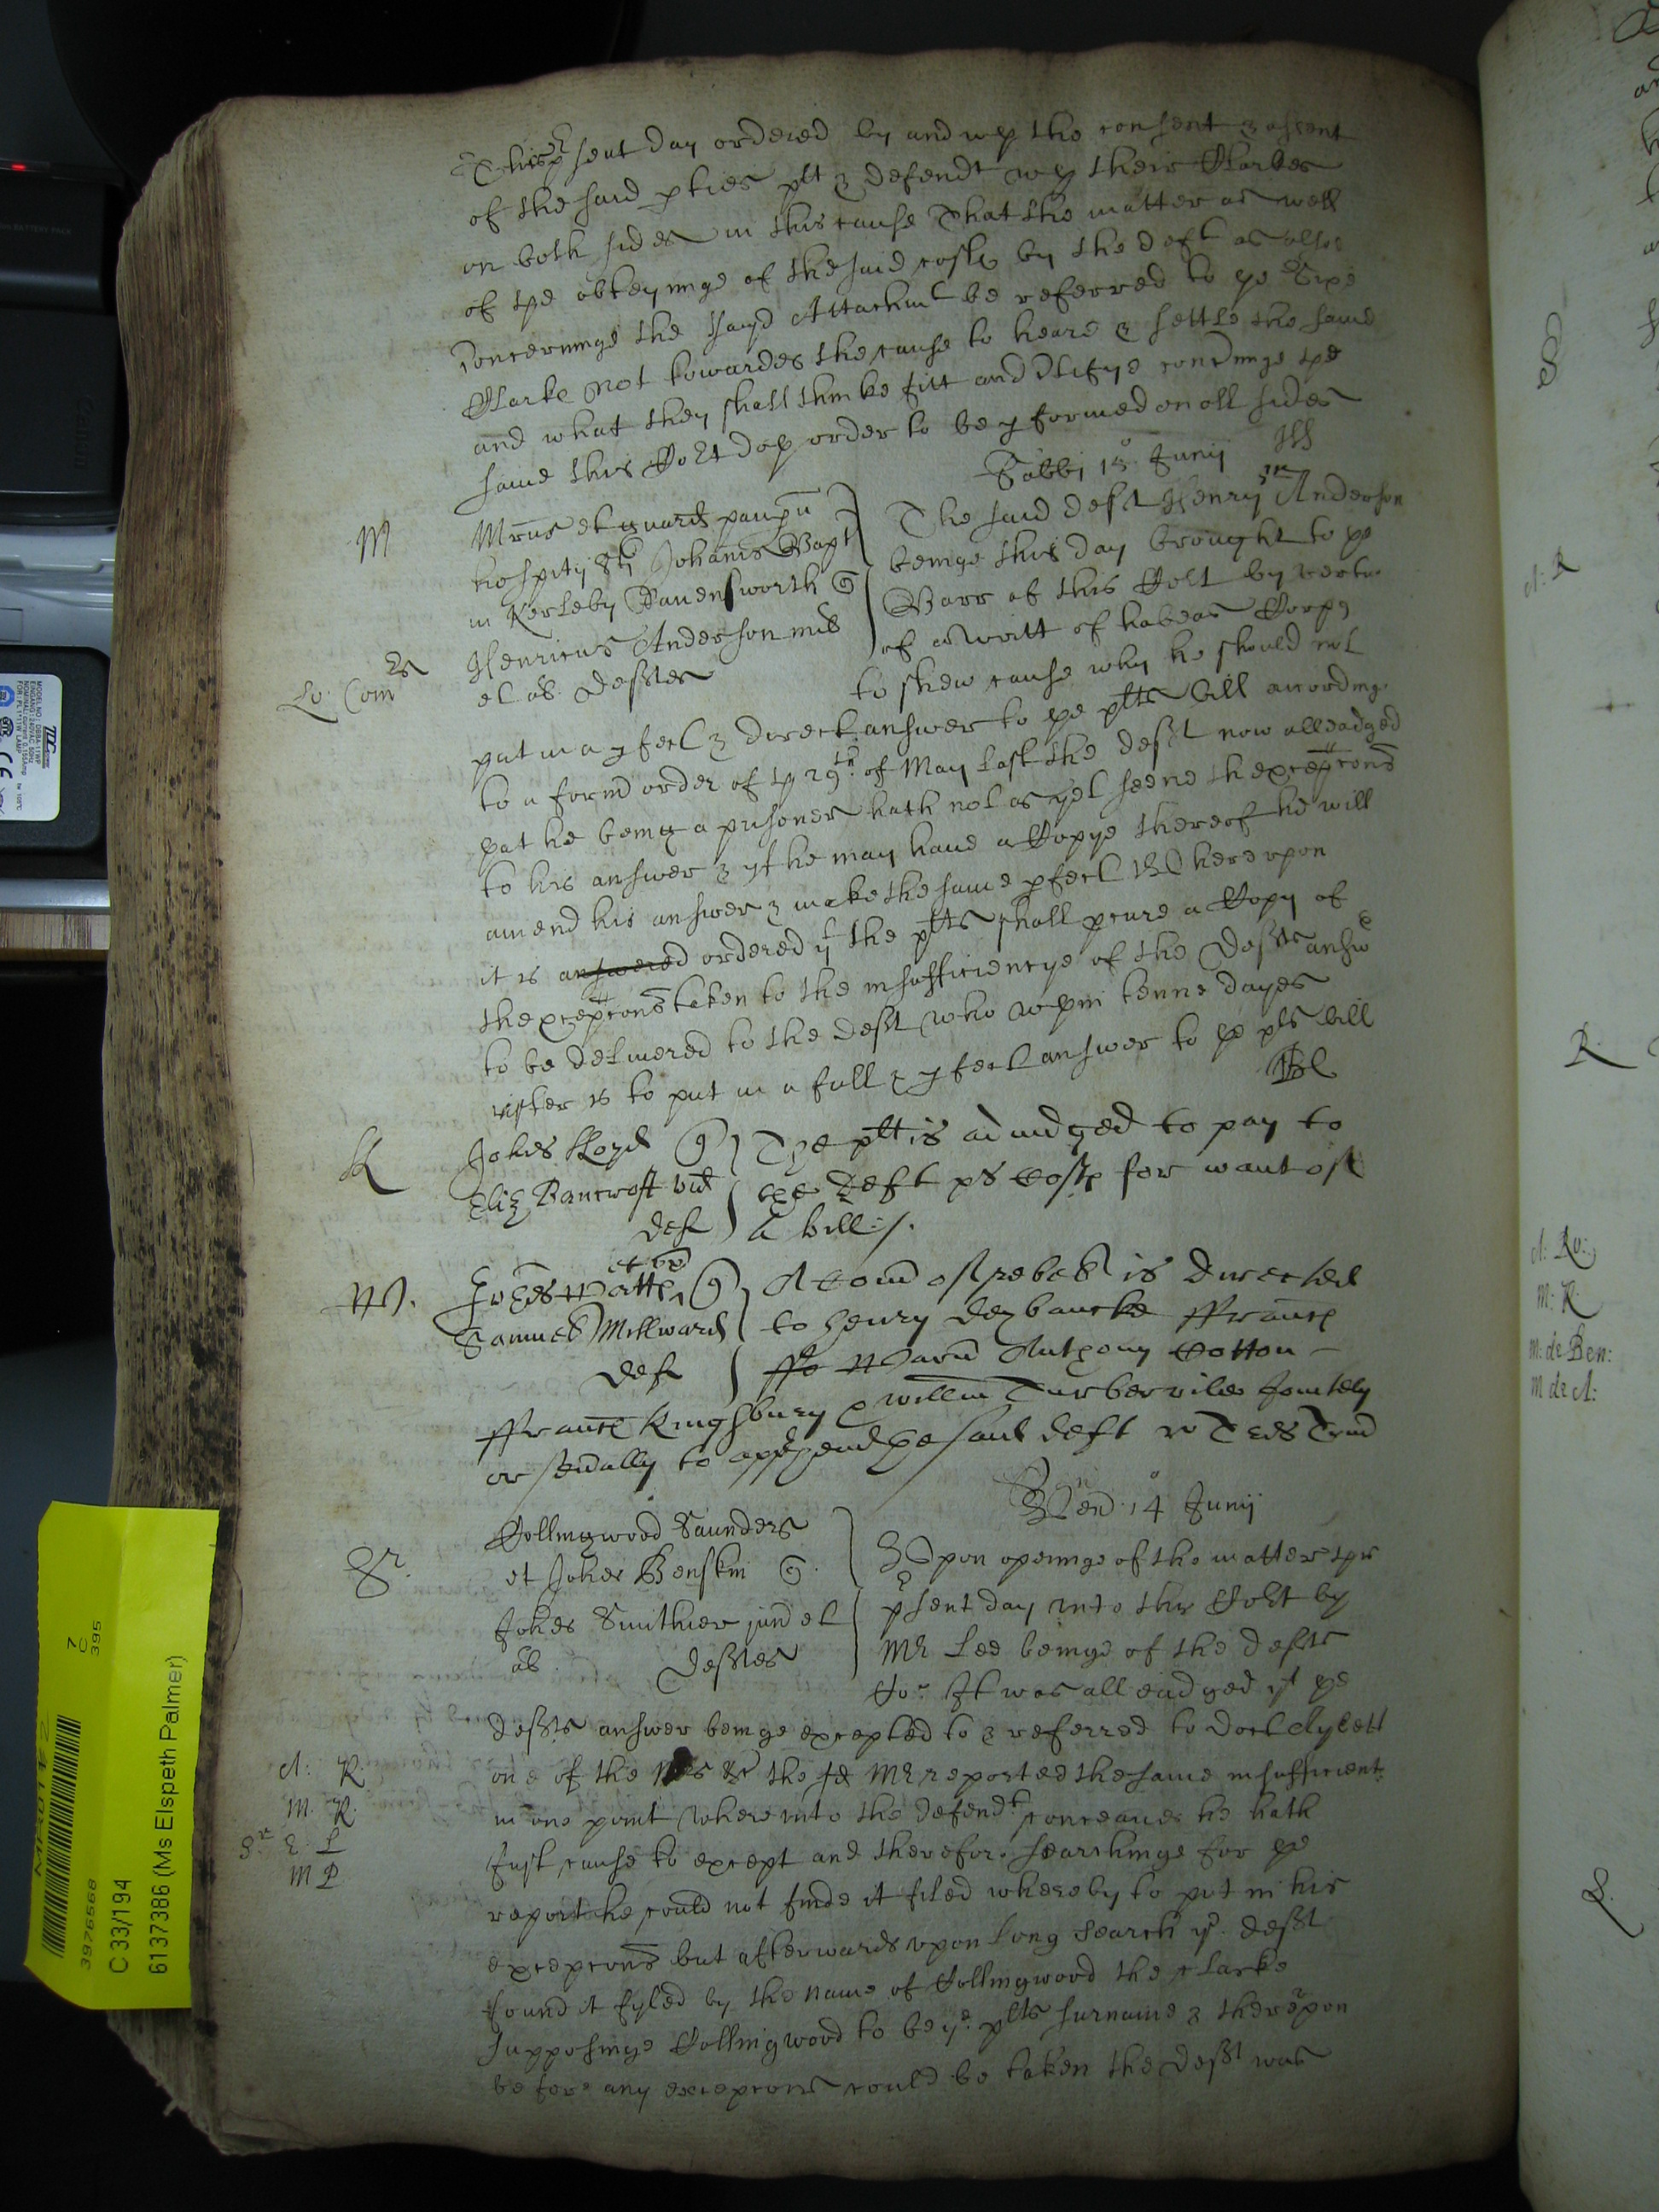 This psent day ordered by and wth the consent & assent
of the said pties plt & defendt wth their Clarkes
on both sides in this cause That the matter as well
of the obteyninge of the said costs by the deft as allso
Concerninge the sayd Attachmt be referred to ye Sixe
Clarke not towardes the cause to heare & settle the same
and what they shall thinke fitt and Certifye concninge the
same this Cort doth order to be pformed on all sides
Sabbi 15o Junij
M Mrus et guard paupu
hospitij Sti Johanis Bapt
in Kerleby Ravensworth
Henricus Anderson mil
et al Deftes
Lo: Com
The said deft Henry Anderson
beinge this day brought to ye
Barr of this Cort by vertue
of a writt of habeas Corps
to shew cause why he should not
put in a pfect & direct answer to the plts bill accordinge
to a formr order of the 29th of May last the deft now alleadged
that he being a prisoner hath not as yet seene the excepcons
to his answer & yf he may have a Copye thereof he will
amend his answer & make the same pfect hereupon
it is answered ordered yt the plts shall pcure a Copy of
the excepcons taken to the insufficiencye of the Defts answ
to be delivered to the deft who wthin tenne dayes
after is to put in a full & pfect answer to the plts bill
Johes Lloyd
Eliz Bancroft vid
def
The plt is adiudged to pay to
the Deft costs for want of
a bill:/.
W. Johes Watts et ux
Samuel Millward
def
A Com of rebell is directed
to Henry Dey bancke ffranc
Warn Anthony Cotton
ffranc Kingsbury & willm Turbervile Joyntely
or sevally to apphend the said deft
Ven 14o Junij
Collingwood Saunders
et Johes Benskin
Johes Smithier jun et
al Deftes
Upon openinge of the matter this
psent day unto this Cort by
Mr Lee beinge of the defts
Co It was alleadged yt ye
defts answer beinge excepted to & referred to Doct Aylett
one of the Mrs &c the sd Mr reported the same insufficient
in one point whereunto the defendt conceaves he hath
Just cause to except and therefore searchinge for ye
report he could not finde it filed whereby to put in his
excepcons but afterwards upon long search ye deft
found it fyled by the name of Collingwood the clarke
supposinge Collingwood to be ye plts surname & thereupon
before any excepcons could be taken the deft was
A: R.
M. R.
S: E: L
M P
A: R
R.
A: Ro:
M: R
M: de Ben:
M de A:
MRC
3976568
7
C
395
C 33/194
6137386 (Ms Elspeth Palmer)
TDC